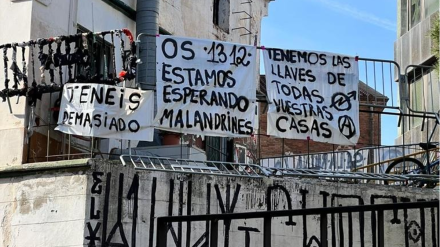 TENEIS
DEMASIADO
OS :1312:
ESTAMOS
ESPERANDO
MALANDRINES
TENEMOS LAS
LLAVES DE
TODAS
VUESTRAS
CASAS